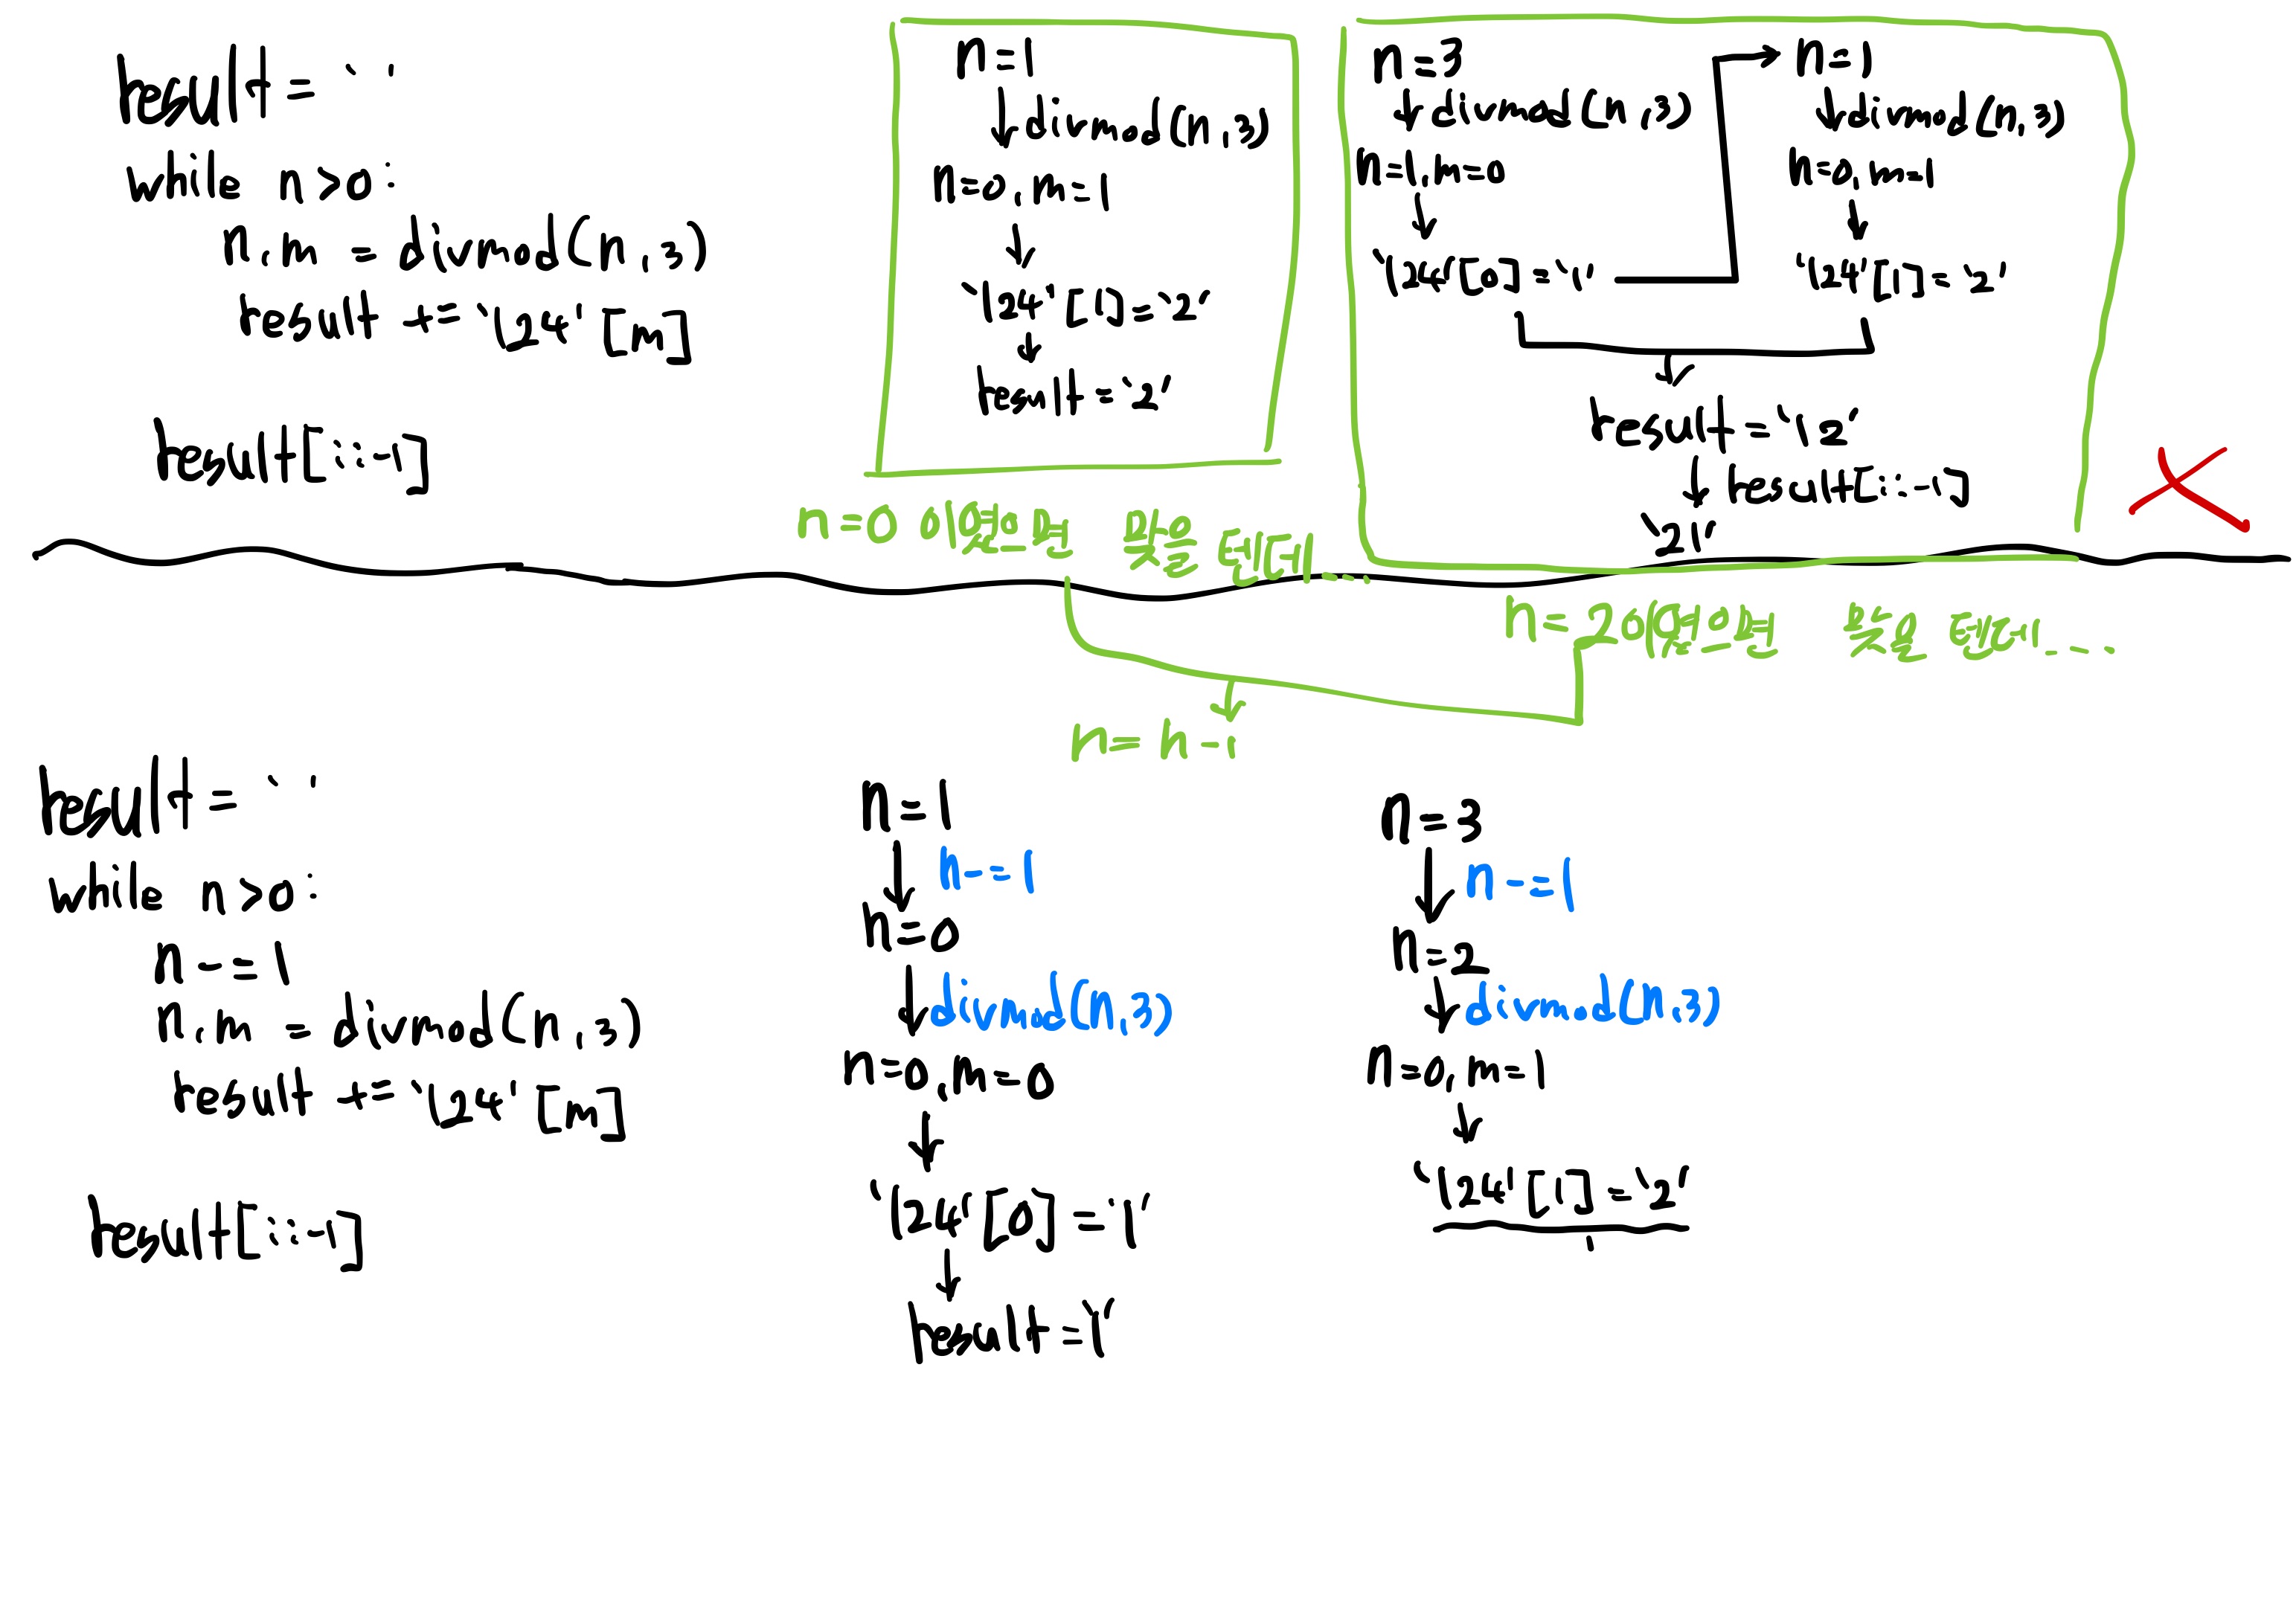 result = ' '
while n>0:
n, m = divmod(n, 3)
result += '124' [m]
result[::-1]
n=1
divmod(n, 3)
n=0, m=1
'124' [1] = '2'
result = '2'
n=3
divmod(n, 3)
n=1, m=0
'124' [0] = '1'
n=1
divmod(n, 3)
n=0, m=1
'124' [1] = '2'
result = '12'
result[::-1]
'21'
n=0 이었으면 좋을 텐데....
n=2이었으면 좋을 텐데....
n = n-1
result = ' '
while n>0:
n -= 1
n, m = divmod(n, 3)
result += '124' [m]
result[::-1]
n=1
n-=1
n=0
divmod(n, 3)
n=0, m=0
'124' [0] = '1'
result = '1'
n=3
n-=1
n=2
divmod(n, 3)
n=0, m=1
'124' [1] = '2'